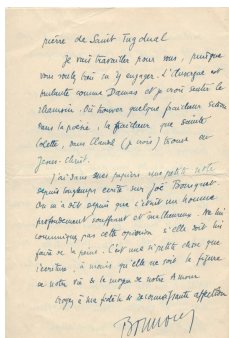 pierre de Saint Tugdual
Je vais travailler pour vous, puisque
vous voulez bien m'y engager. L'Auvergne est
brûlante comme Damas et je crois sentir le
chamois. Où trouver quelque fraîcheur sinon
dans la poésie, la fraîcheur que Sainte
Colette, dans Claudel (je crois) trouve en
Jésus-Christ.
J'ai dans mes papiers une petite note
depuis longtemps écrite sur Joë Bousquet.
On m'a dit depuis que c'était un homme
profondément souffrant et meilleur. Ne lui
communiquez pas cette opinion si elle doit lui
faire de la peine. C'est une si petite chose que
l'écriture, à moins qu'elle ne soit la figure
de notre vie & le moyen de notre Amour
Croyez à ma fidèle & reconnaissante affection